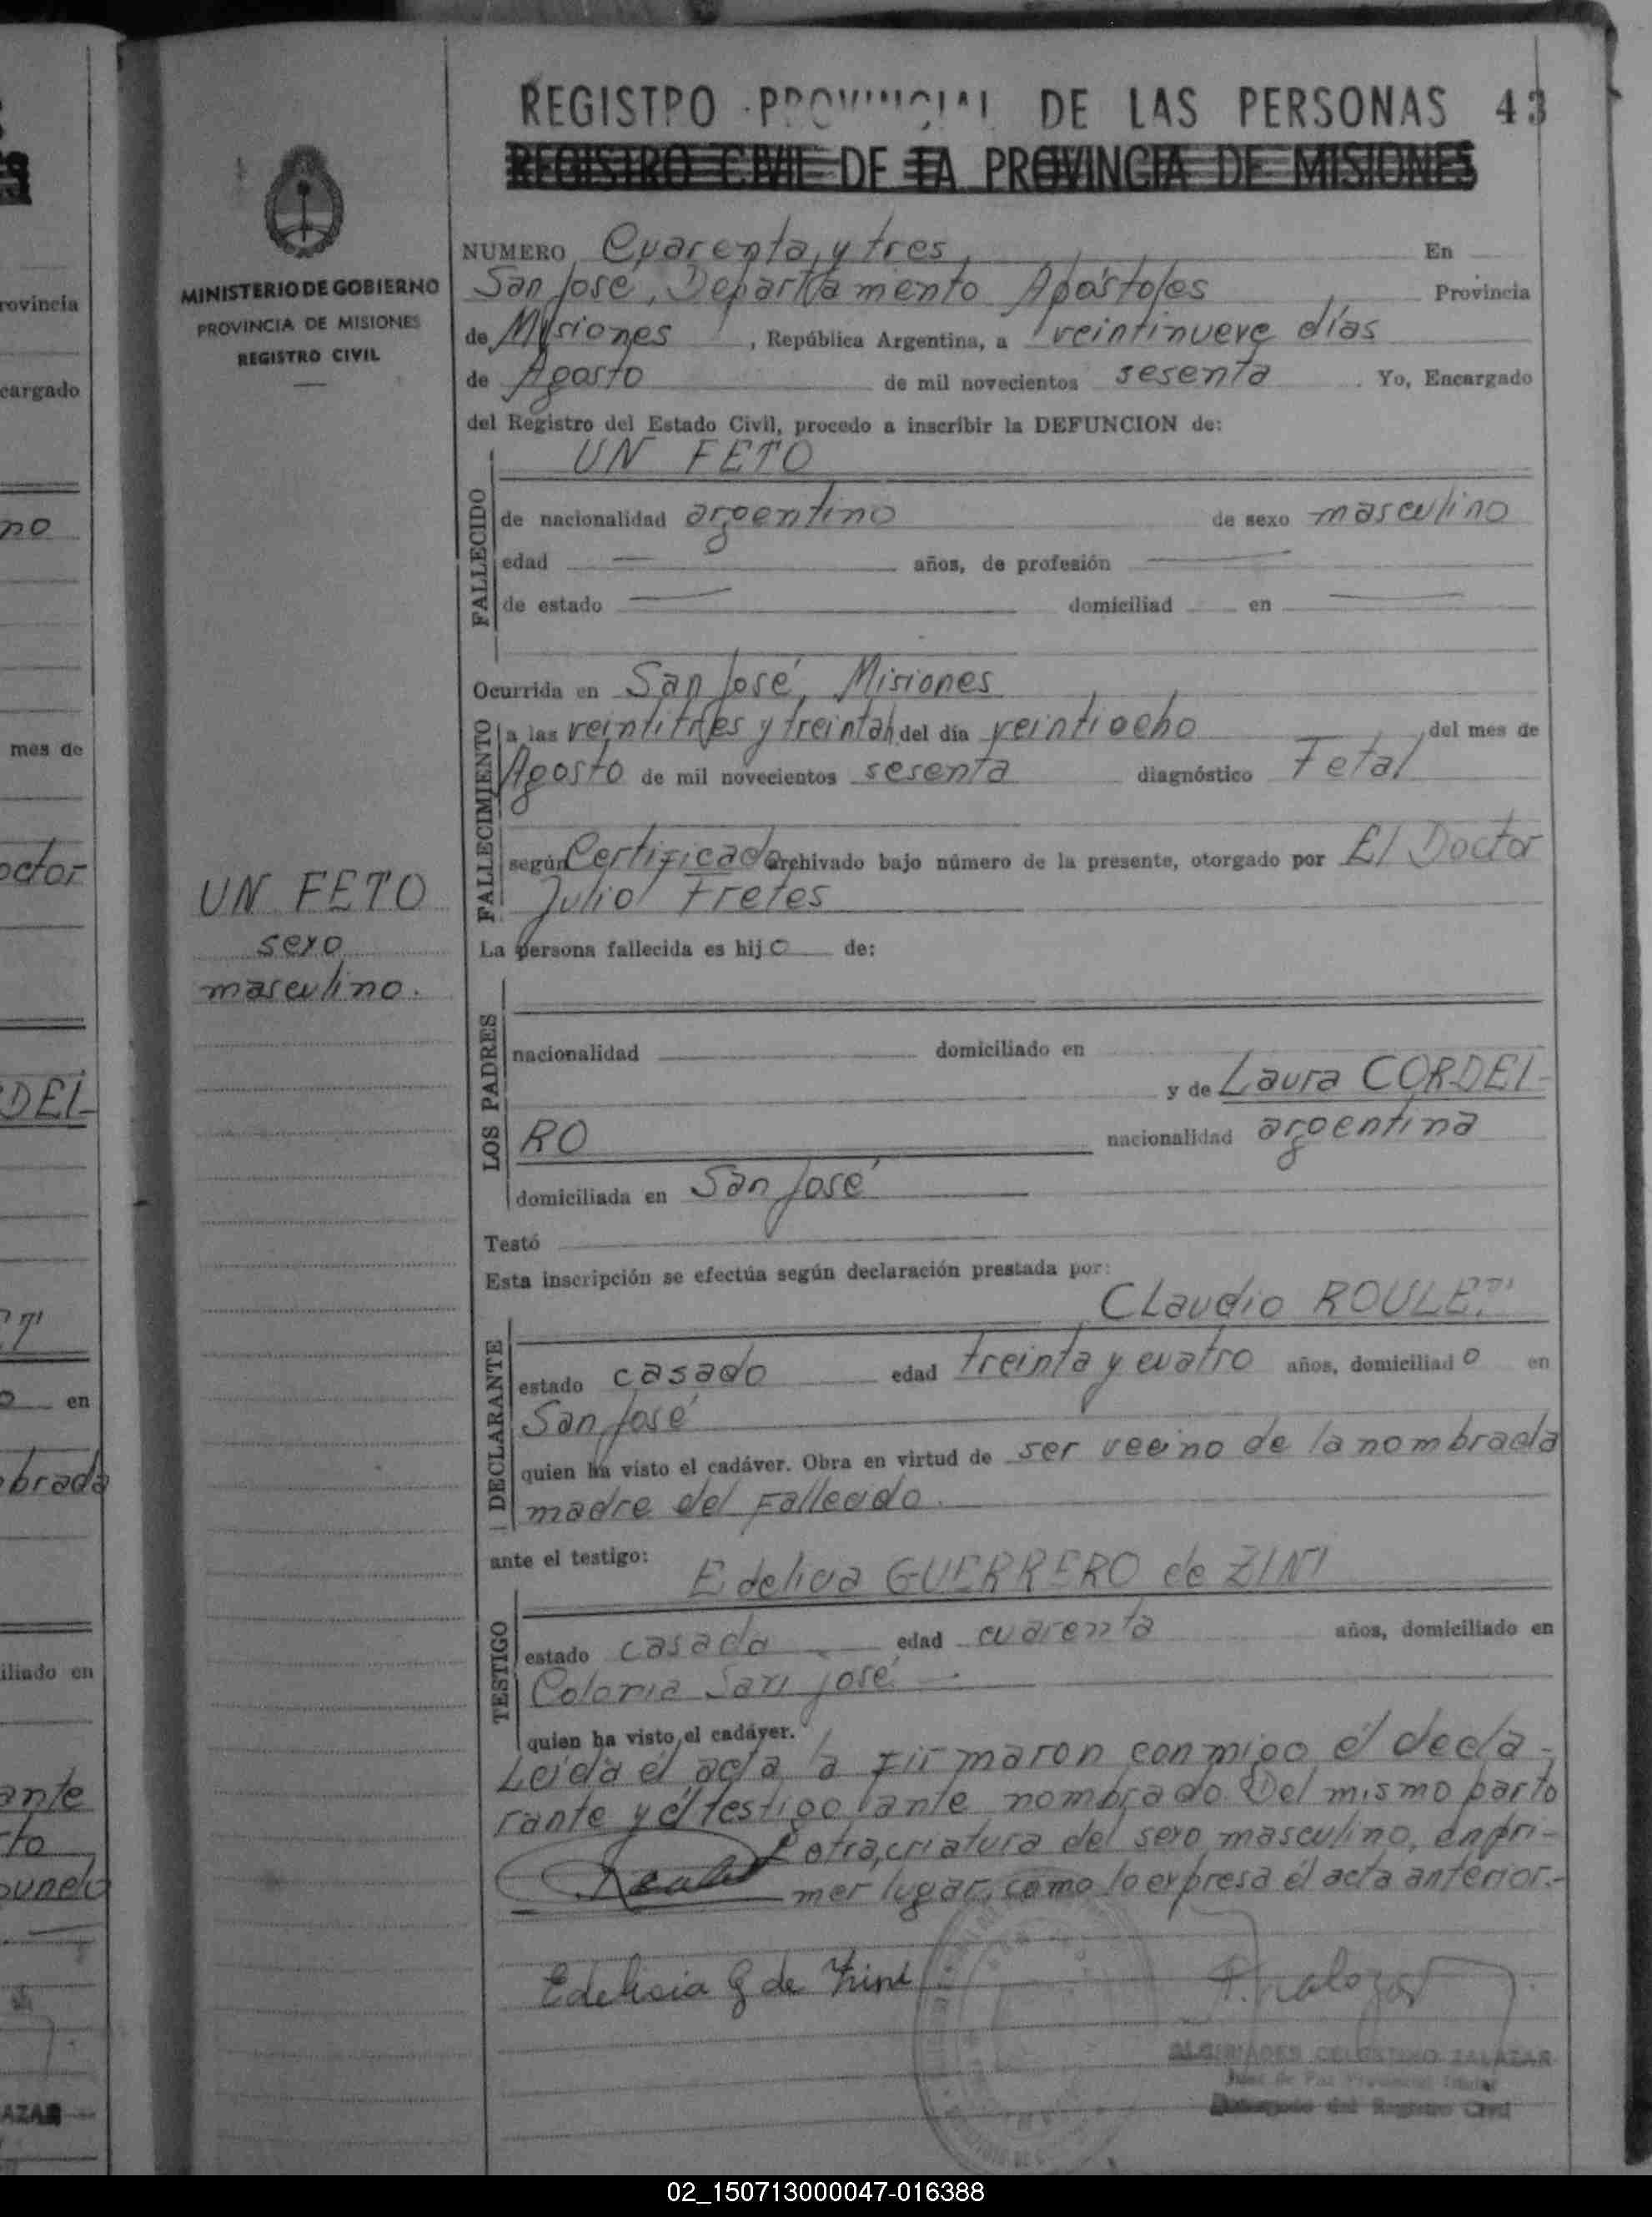 REGISTRO PROVINCIAL DE LAS PERSONAS 43
REGISTRO CIVIL DE LA PROVINCIA DE MISIONES
MINISTERIO DE GOBIERNO
PROVINCIA DE MISIONES
REGISTRO CIVIL
NUMERO Cuarenta y tres En
San José, Departamento Apóstoles Provincia
de Misiones, República Argentina, a veintinueve días
de Agosto de mil novecientos sesenta. Yo, Encargado
del Registro del Estado Civil, procedo a inscribir la DEFUNCION de:
UN FETO
FALLECIDO
de nacionalidad argentino de sexo masculino
edad — años, de profesión —
de estado — domiciliad en —
Ocurrida en San José, Misiones
FALLECIMIENTO
a las veintitres y treinta h. del día veintiocho del mes de
Agosto de mil novecientos sesenta diagnóstico Fetal
según Certificado archivado bajo número de la presente, otorgado por El Doctor
Julio Fretes
UN FETO
sexo
masculino.
La persona fallecida es hijo de:
LOS PADRES
nacionalidad domiciliado en
y de Laura CORDEI-
RO nacionalidad argentina
domiciliada en San José
Testó
Esta inscripción se efectúa según declaración prestada por:
Claudio ROULET
DECLARANTE
estado casado edad treinta y cuatro años, domiciliado en
San José
quien ha visto el cadáver. Obra en virtud de ser vecino de la nombrada
madre del Fallecido.
ante el testigo:
Edelicia GUERRERO de ZINI
TESTIGO
estado casada edad cuarenta años, domiciliado en
Colonia San José
quien ha visto el cadáver.
Leida el acta la firmaron conmigo él decla-
rante y él testigo ante nombrado. Del mismo parto
otra criatura del sexo masculino, en pri-
mer lugar, como lo expresa él acta anterior.-
Edelicia G de Zini
ALCIBIADES CELESTINO ZALAZAR
Juez de Paz Provincial Titular
Encargado del Registro Civil
rovincia
cargado
no
mes de
octor
DEI-
en
brada
iliado en
ante
to
AZAR
02_150713000047-016388